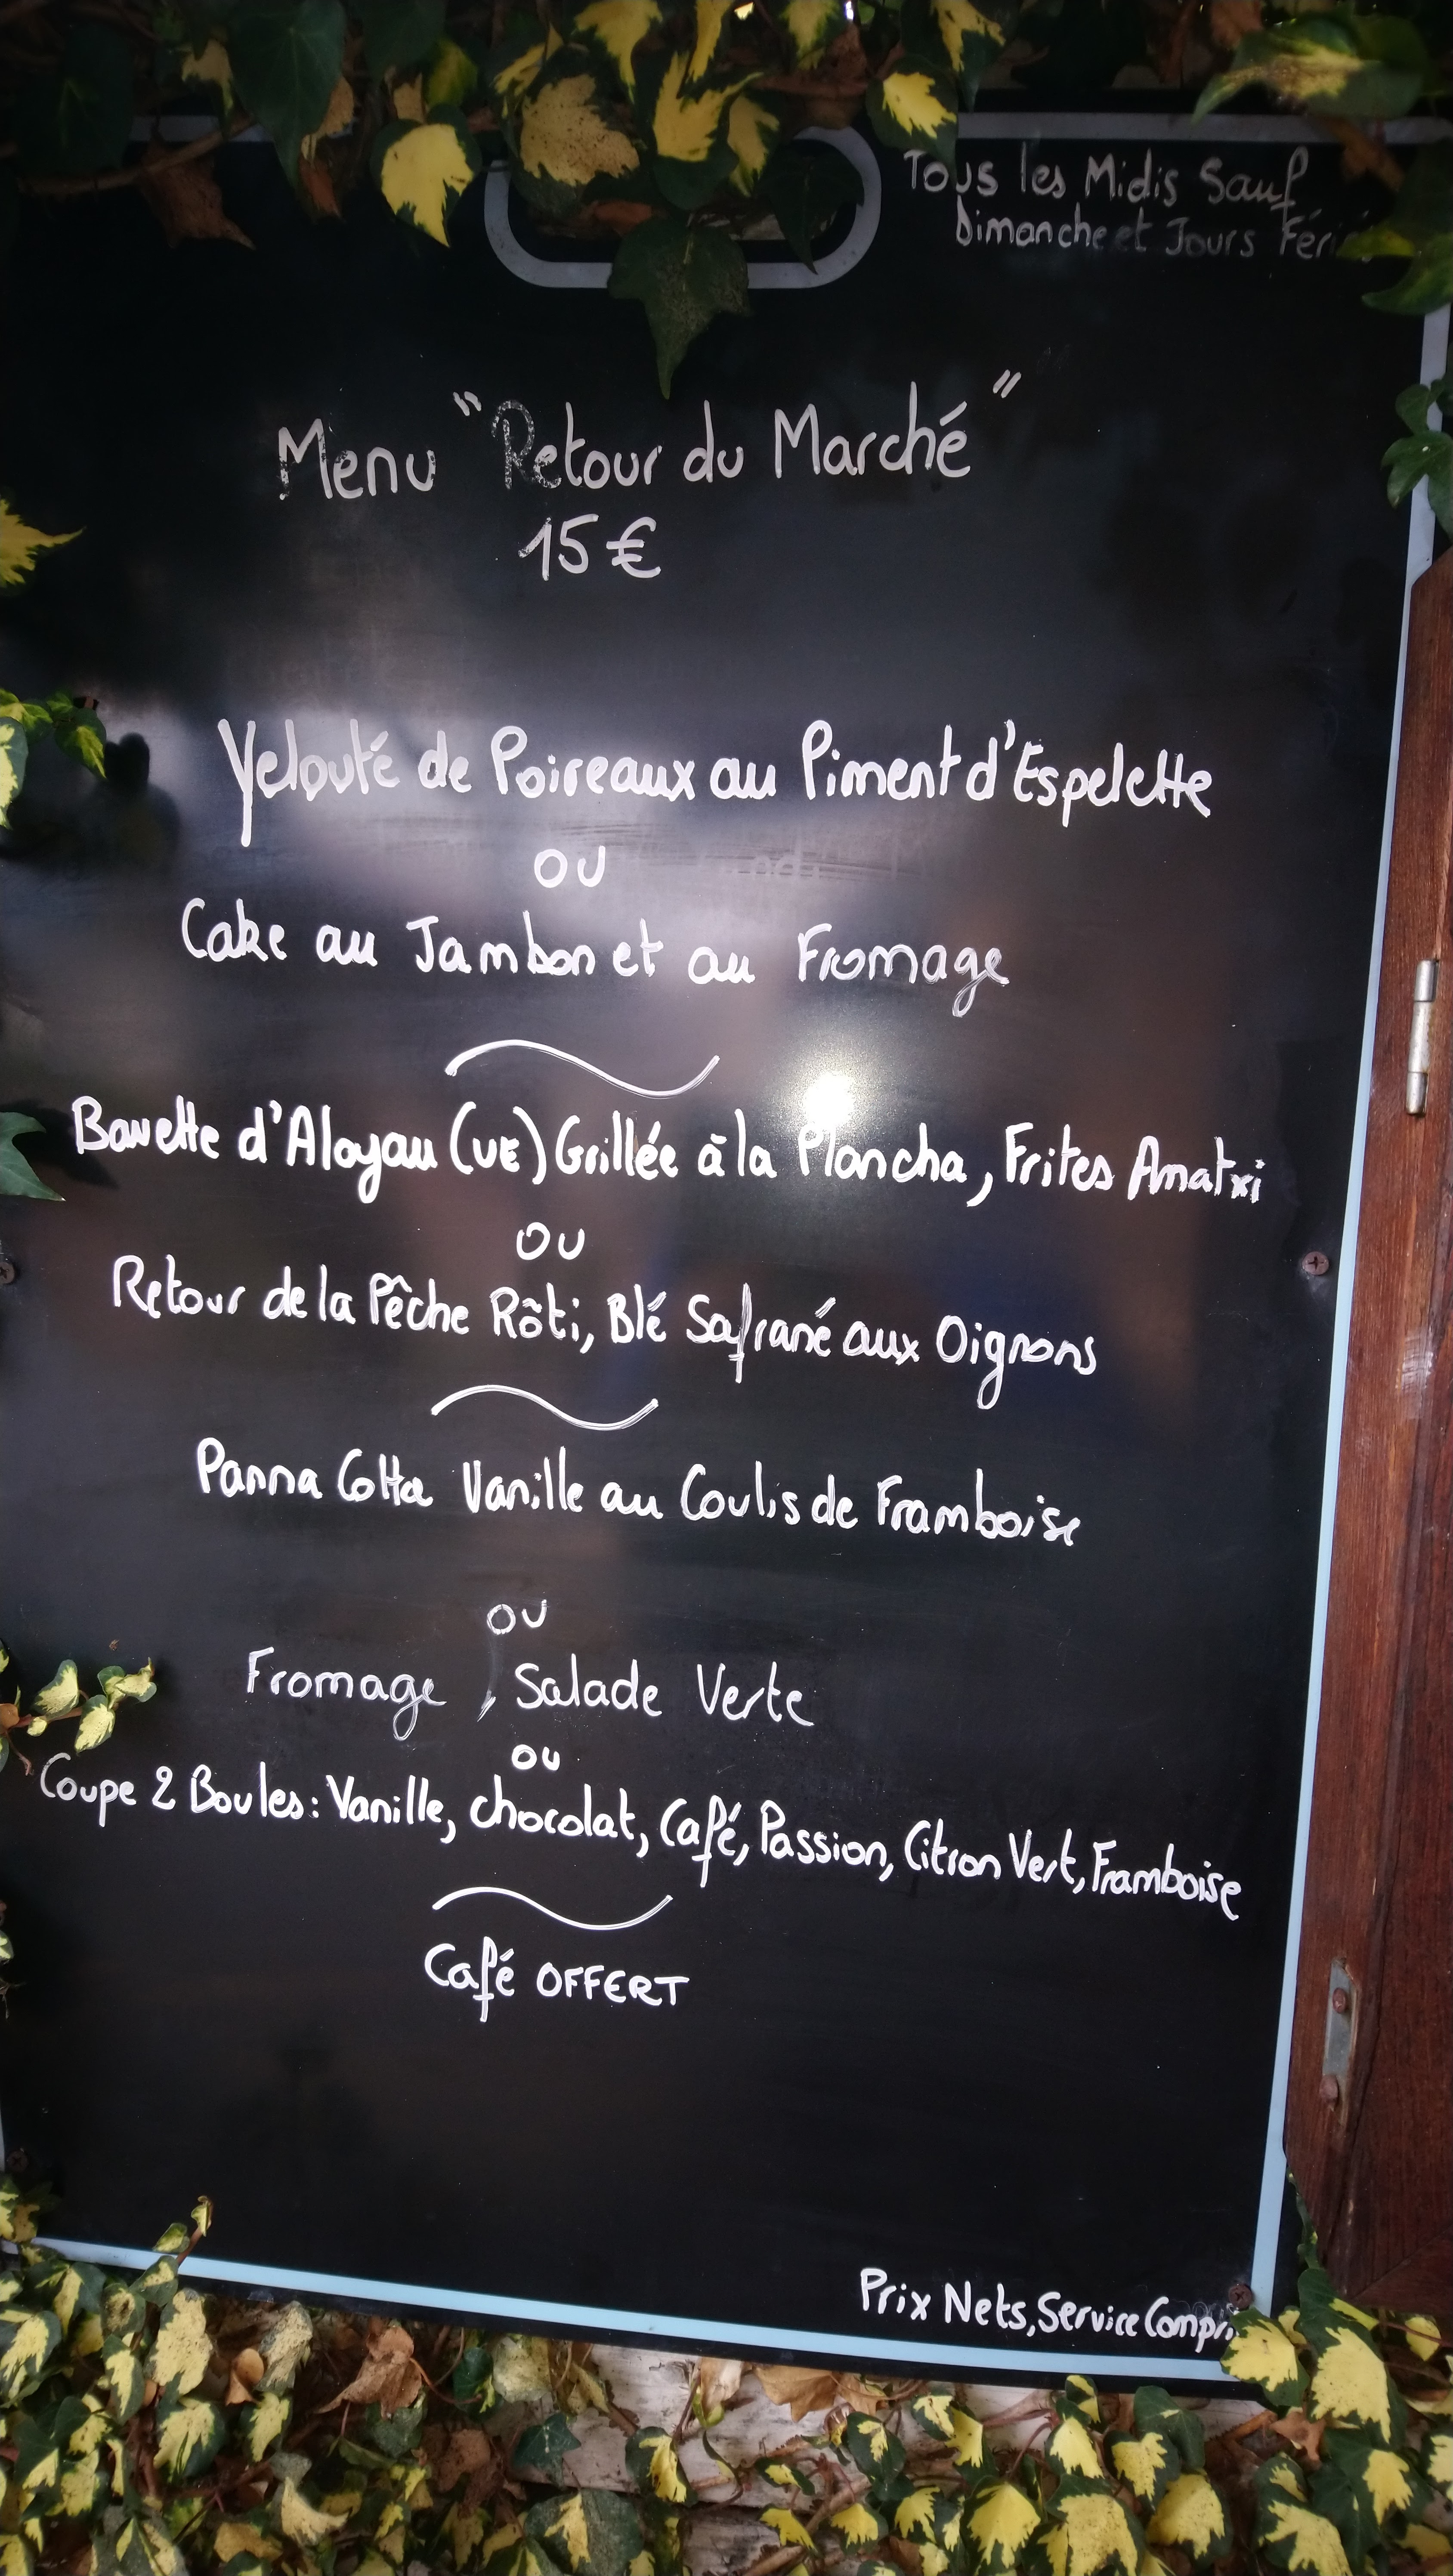 Tous les Midis Sauf
Dimanche et Jours
Menu "Retour du Marché"
15€
Velouté de Poireaux au Piment d'Espelette
OU
Cake au Jambon et au Fromage
Bavette d'Aloyau (UE) Grillée à la Plancha, Frites Amatxi
OU
Retour de la Pêche Rôti, Blé Safrané aux Oignons
Panna Cotta Vanille au Coulis de Framboise
OU
Fromage, Salade Verte
OU
Coupe 2 Boules: Vanille, Chocolat, Café, Passion, Citron Vert, Framboise
Café OFFERT
Prix Nets, Service